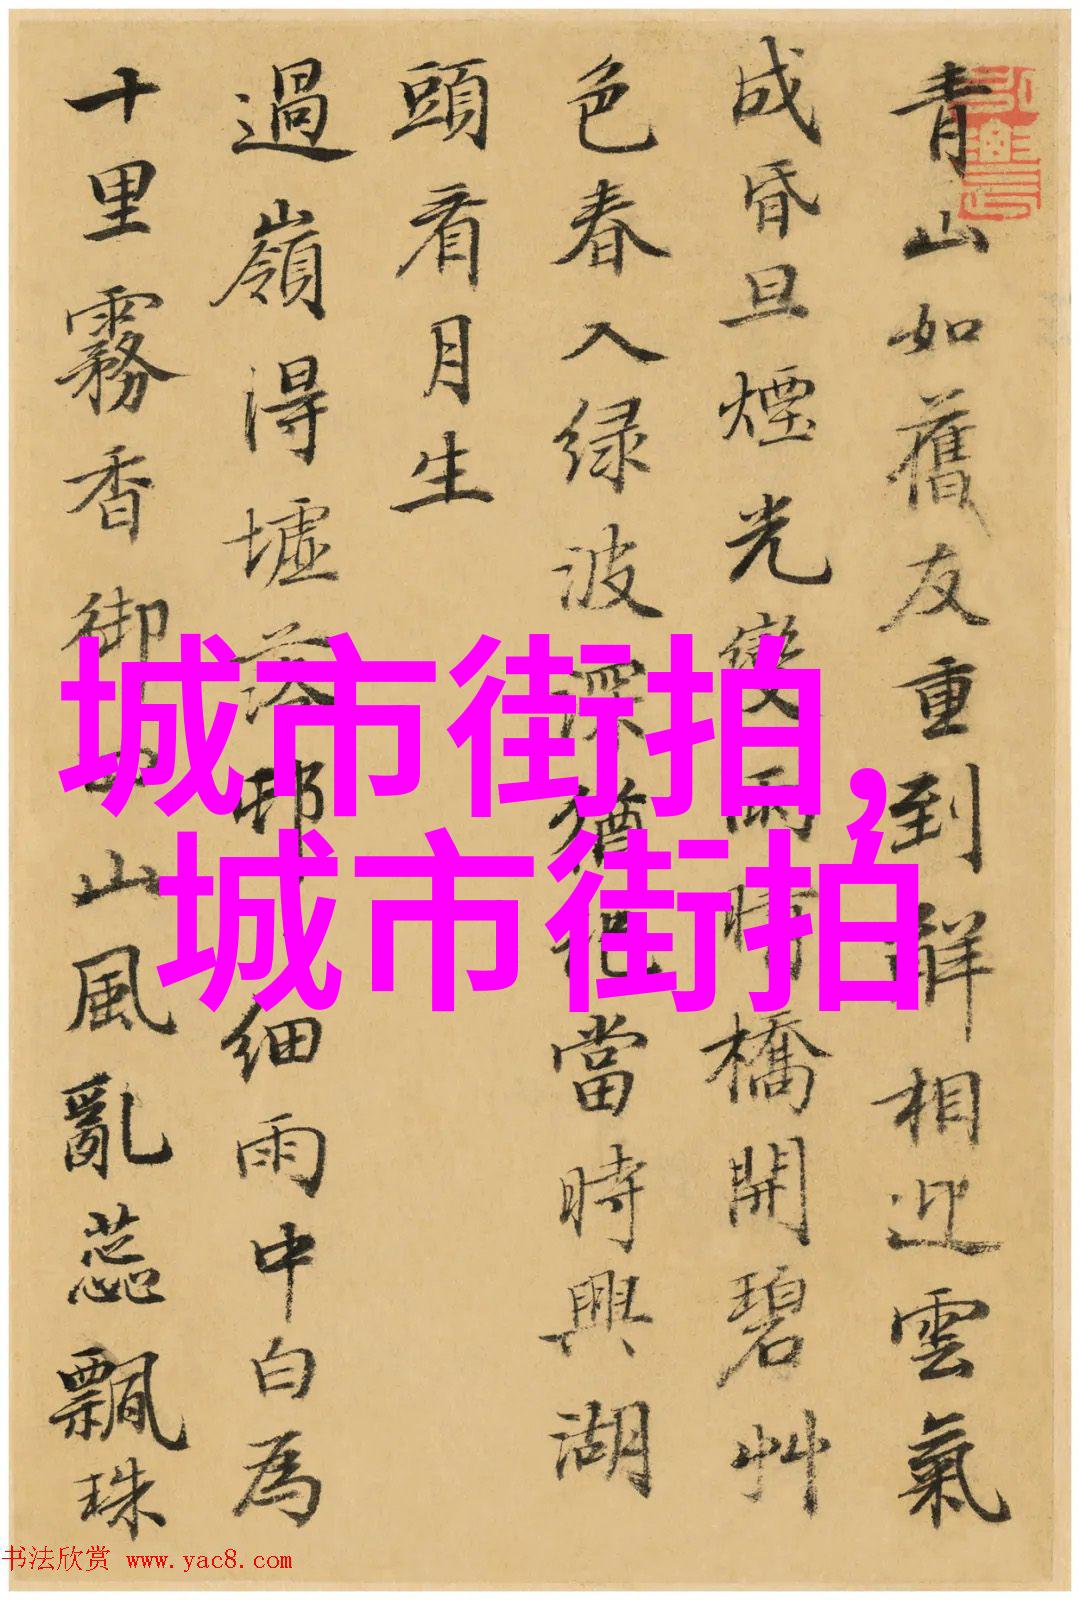 青山如舊友重到觧相迎雲氣
成昏旦煙光變雨晴橋開碧艸
色春入绿波深猶記當時興湖
頭看月生
過嶺得墟落邨細雨中白為
十里霧香御山風亂蕊飄珠
城市街拍,
城市街拍
书法欣赏 www.yac8.com